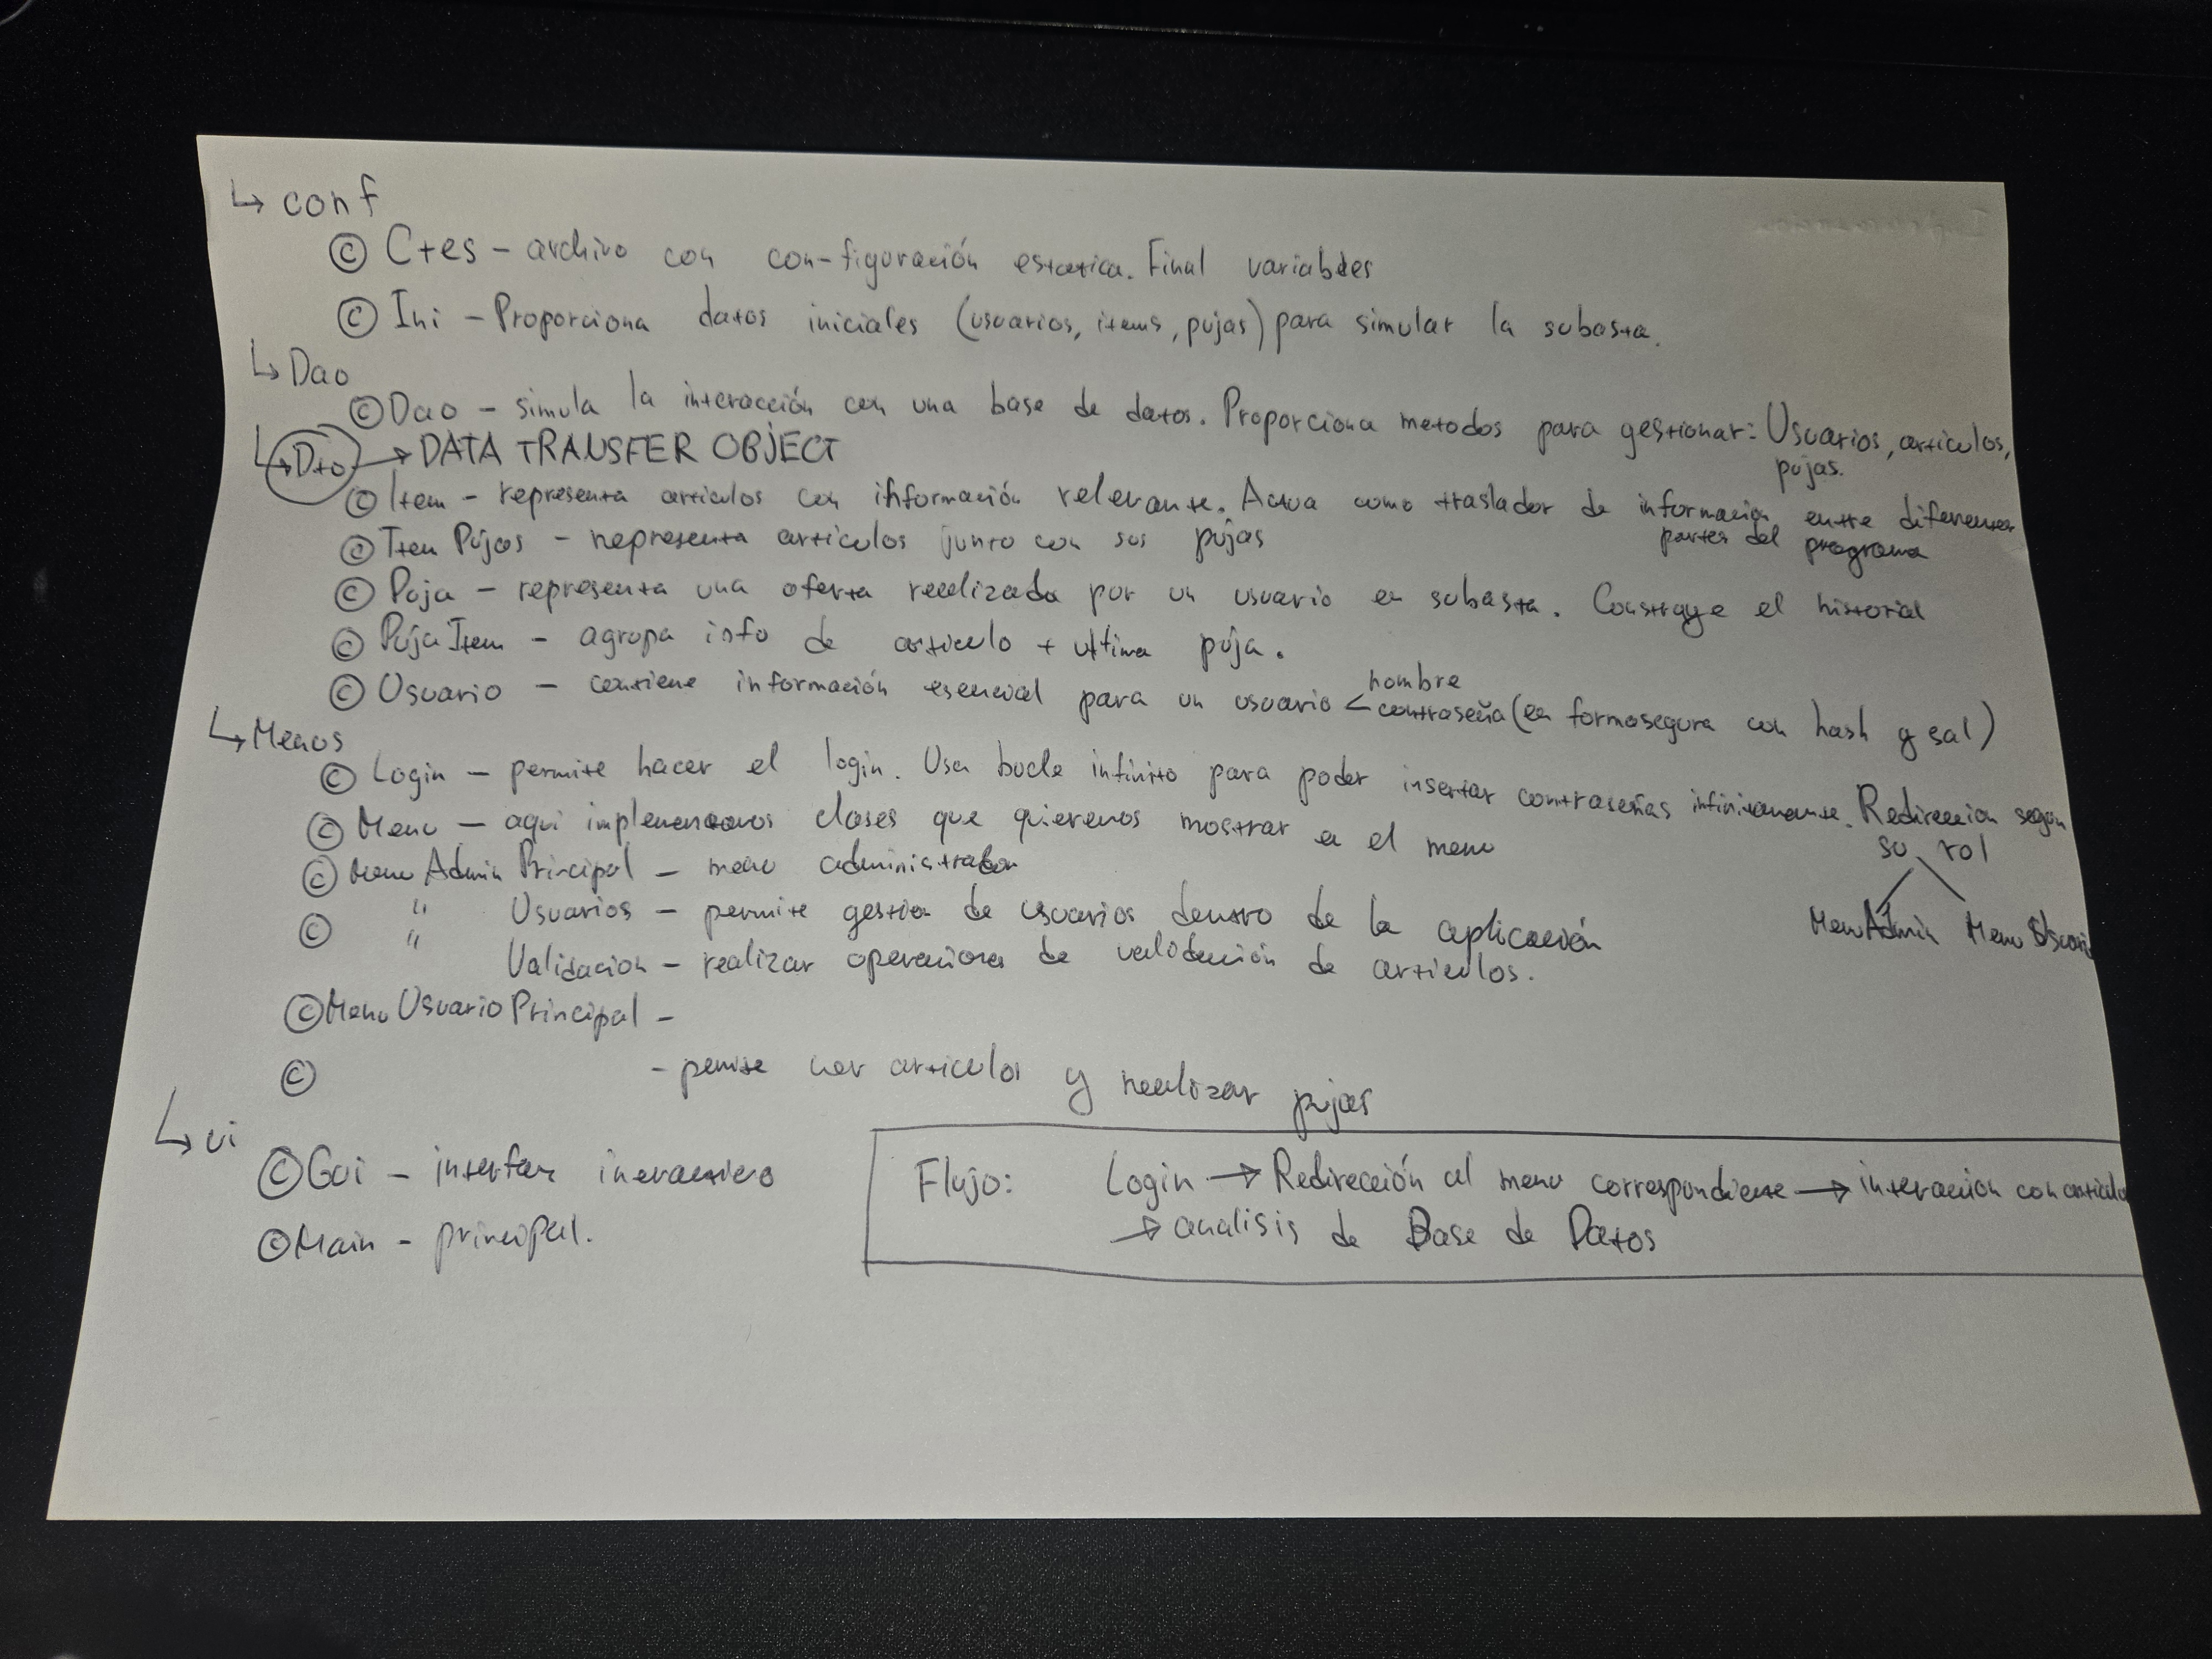 ↳ conf
© Ctes – archivo con configuración estatica. Final variables
© Ini – Proporciona datos iniciales (usuarios, items, pujas) para simular la subasta.
↳ Dao
© Dao – simula la interacción con una base de datos. Proporciona metodos para gestionar: Usuarios, articulos,
pujas.
↳ Dto → DATA TRANSFER OBJECT
© Item – representa articulos con información relevante. Actua como traslador de informacion entre diferentes
partes del programa
© Item Pujas – representa articulos junto con sus pujas
© Puja – representa una oferta realizada por un usuario en subasta. Construye el historial
© Puja Item – agrupa info de articulo + ultima puja.
© Usuario – contiene información esencial para un usuario < nombre
contraseña (en forma segura con hash y sal)
↳ Menus
© Login – permite hacer el login. Usa bucle infinito para poder insertar contraseñas infinitamente. Redireccion segun
su rol
© Menu – aqui implementamos clases que queremos mostrar en el menu
© Menu Admin Principal – menu administrador
© " Usuarios – permite gestion de usuarios dentro de la aplicación
Menu Admin Menu Usuario
" Validacion – realizar operaciones de validación de articulos.
© Menu Usuario Principal –
© – permite ver articulos y realizar pujas
↳ ui
© Gui – interfaz
© Main – principal.
Flujo: Login → Redirección al menu correspondiente → interacion con articulo
→ analisis de Base de Datos